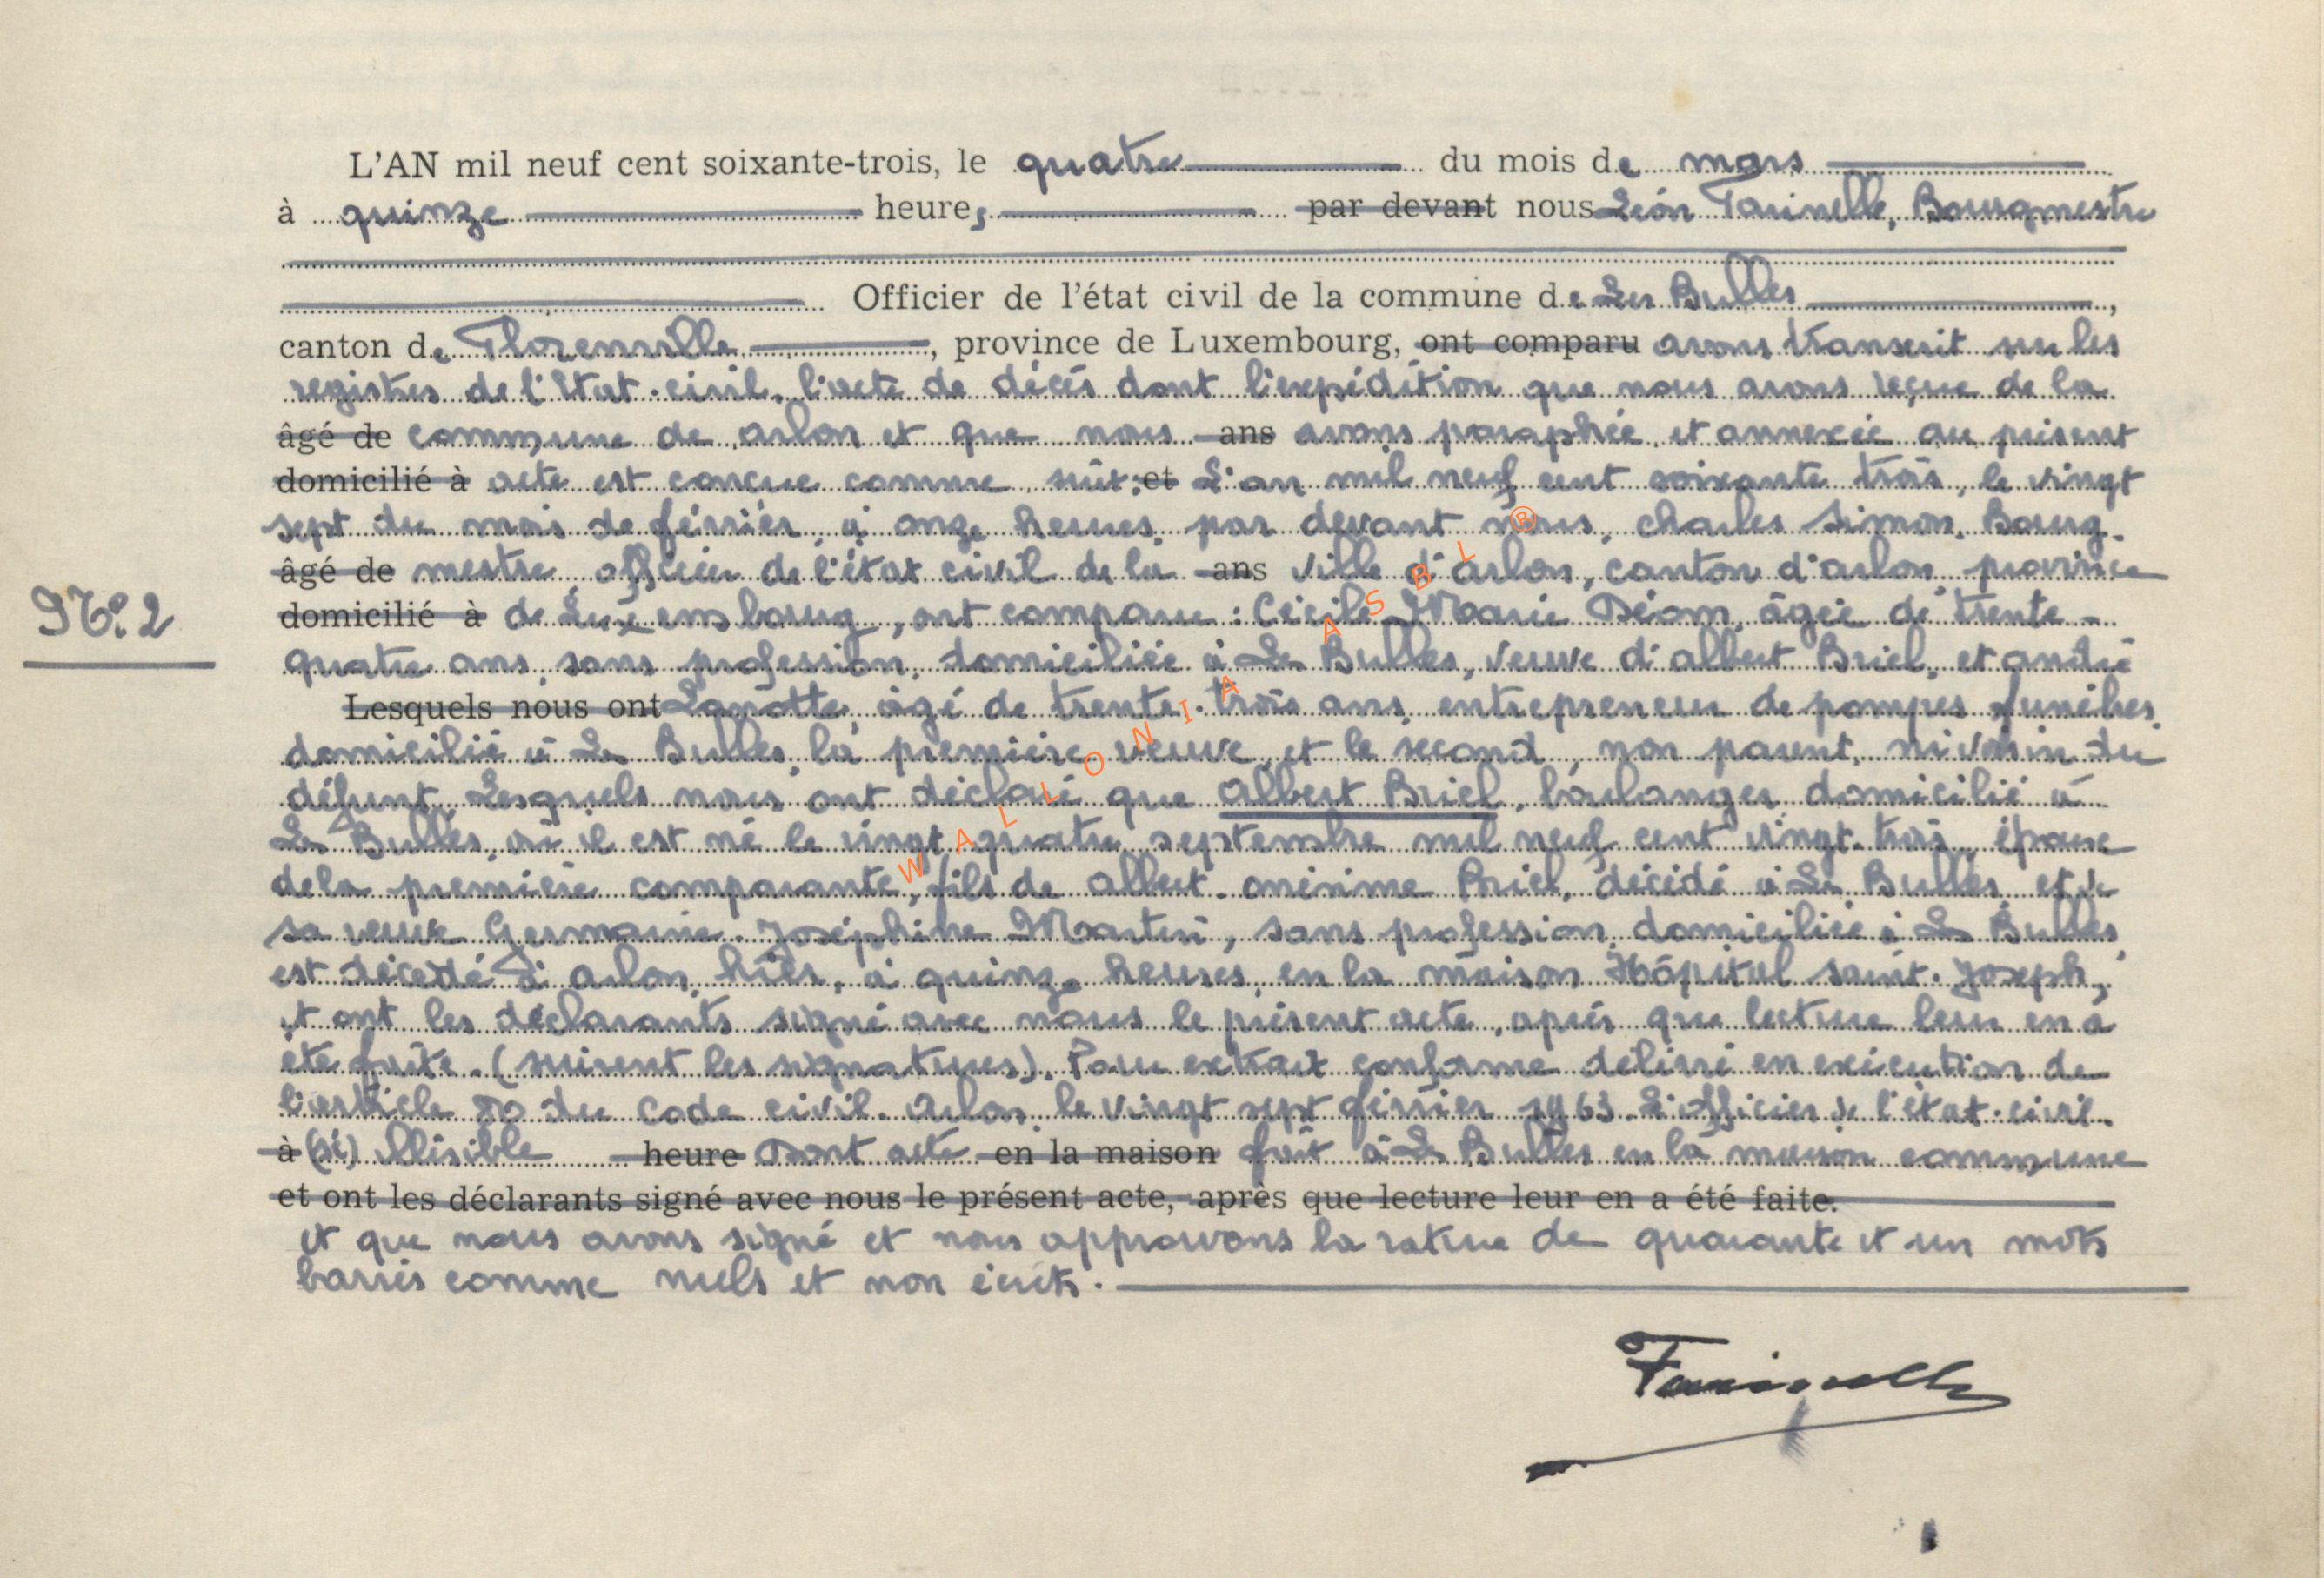 L'AN mil neuf cent soixante-trois, le quatre du mois de mars
à quinze heures, par devant nous Léon Farinelle, Bourgmestre
Officier de l'état civil de la commune de Les Bulles,
canton de Florenville, province de Luxembourg, ont comparu avons transcrit sur les
registres de l'Etat-civil, l'acte de décès dont l'expédition que nous avons reçue de la
âgé de commune de Arlon et que nous ans avons paraphée et annexée au présent
domicilié à acte est conçue comme suit: et L'an mil neuf cent soixante trois, le vingt
sept du mois de février, à onze heures, par devant nous, Charles Simon, Bourg-
âgé de mestre, officier de l'état civil de la ans ville d'Arlon, canton d'Arlon province
N° 2
domicilié à de Luxembourg, ont comparu : Cécile Marie Déom, âgée de trente-
quatre ans, sans profession, domiciliée à Les Bulles, veuve d'Albert Briel, et André
Lesquels nous ont Lanotte, âgé de trente-trois ans, entrepreneur de pompes funèbres,
domicilié à Les Bulles, la première veuve, et le second, non parent, ni voisin du
défunt, Lesquels nous ont déclaré que Albert Briel, boulanger domicilié à
Les Bulles, où il est né le vingt quatre septembre mil neuf cent vingt-trois, époux
de la première comparante, fils de Albert-Onésime Briel, décédé à Les Bulles, et de
sa veuve Germaine-Joséphine Martin, sans profession, domiciliée à Les Bulles
est décédé à Arlon, hier, à quinze heures, en la maison Hôpital Saint-Joseph,
et ont les déclarants signé avec nous le présent acte, après que lecture leur en a
été faite. (suivent les signatures). Pour extrait conforme délivré en exécution de
l'article 80 du Code civil. Arlon, le vingt sept février 1963. L'officier de l'état-civil.
à (sé) Illisible heure Dont acte en la maison fait à Les Bulles en la maison commune
et ont les déclarants signé avec nous le présent acte, après que lecture leur en a été faite.
et que nous avons signé et nous approuvons la rature de quarante et un mots
barrés comme nuls et non écrits.
Farinelle
WALLONIA ASBL ®